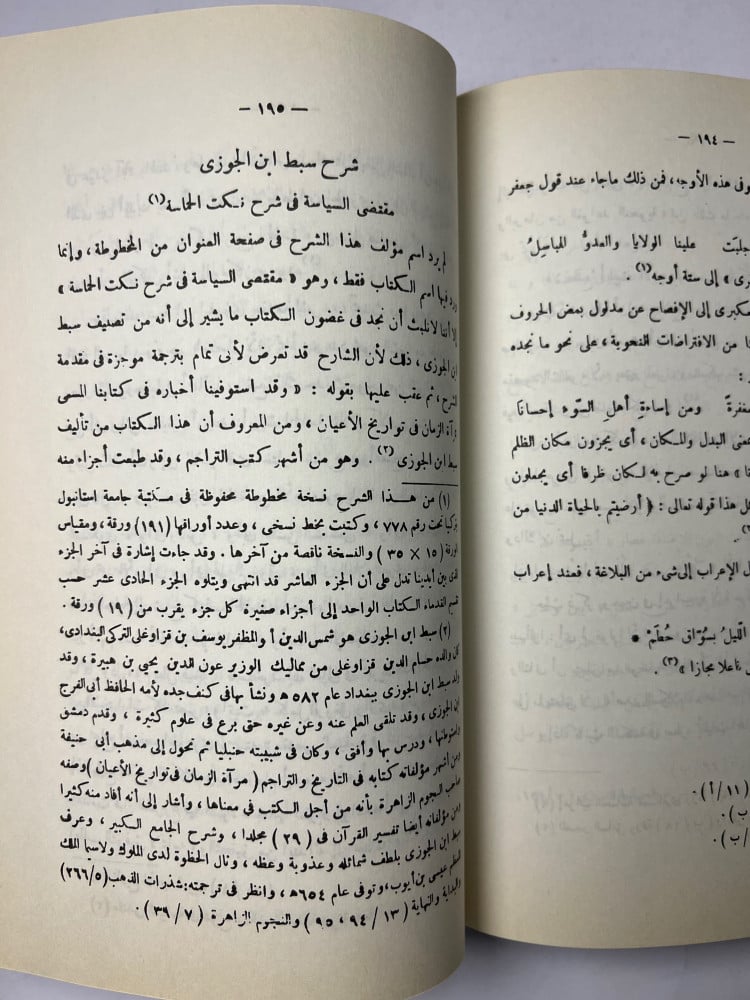 — ١٩٤ —
وفى هذه الأوجه، فمن ذلك ماجاء عند قول جعفر
علينا الولايا والعدوُّ المباسِلُ
إلى ستة أوجه(١) .
مكبرى إلى الإفصاح عن مدلول بعض الحروف
من الافتراضات النحوية، على نحو ما نجده
:
ومن إساءةِ أهلِ السّوء إحسانَا
معنى البدل والمكان، أى يجزون مكان الظلم
هنا لو صرح به لكان ظرفا أى يجعلون
هذا قوله تعالى : ﴿ أرضيتم بالحياة الدنيا من
الإعراب إلى شىء من البلاغة ، فعند إعراب
الليلُ بسوّاق حُطَمْ *
مجازا »(٣) .
(١١/أ) .
ب) .
/ب) .
— ١٩٥ —
شرح سبط ابن الجوزى
مقتضى السياسة فى شرح نكت الحماسة(١)
لم يرد اسم مؤلف هذا الشرح فى صفحة العنوان من المخطوطة ، وإنما
ورد فيها اسم الكتاب فقط ، وهو « مقتضى السياسة فى شرح نكت الحماسة »
إلا أننا لانلبث أن نجد فى غضون الكتاب ما يشير إلى أنه من تصنيف سبط
ابن الجوزى ، ذلك لأن الشارح قد تعرض لأبى تمام بترجمة موجزة فى مقدمة
الشرح ، ثم عقب عليها بقوله : « وقد استوفينا أخباره فى كتابنا المسمى
مرآة الزمان فى تواريخ الأعيان ، ومن المعروف أن هذا الكتاب من تأليف
سبط ابن الجوزى(٢) . وهو من أشهر كتب التراجم ، وقد طبعت أجزاء منه
(١) من هذا الشرح نسخة مخطوطة محفوظة فى مكتبة جامعة استانبول
بتركيا تحت رقم ٧٧٨ ، وكتبت بخط نسخى ، وعدد أوراقها (١٩١) ورقة ، ومقياس
الورقة ( ١٥ × ٣٥ ) والنسخة ناقصة من آخرها . وقد جاءت إشارة فى آخر الجزء
الذى بين أيدينا تدل على أن الجزء العاشر قد انتهى ويتلوه الجزء الحادى عشر حسب
تقسيم القدماء الكتاب الواحد إلى أجزاء صغيرة كل جزء يقرب من (١٩) ورقة .
(٢) سبط ابن الجوزى هو شمس الدين أبو المظفر يوسف بن قزاوغلى التركى البغدادى،
كان والده حسام الدين قزاوغلى من مماليك الوزير عون الدين يحيى بن هبيرة ، وقد
ولد سبط ابن الجوزى ببغداد عام ٥٨٢ه ونشأ بها فى كنف جده لأمه الحافظ أبى الفرج
ابن الجوزى ، وقد تلقى العلم عنه وعن غيره حتى برع فى علوم كثيرة ، وقدم دمشق
واستوطنها ، ودرس بها وأفتى ، وكان فى شبيبته حنبليا ثم تحول إلى مذهب أبى حنيفة
ومن أشهر مؤلفاته كتابه فى التاريخ والتراجم ( مرآة الزمان فى تواريخ الأعيان ) وصفه
صاحب النجوم الزاهرة بأنه من أجل الكتب فى معناها ، وأشار إلى أنه أفاد منه كثيرا
ومن مؤلفاته أيضا تفسير القرآن فى ( ٢٩ ) مجلدا ، وشرح الجامع الكبير ، وعرف
سبط ابن الجوزى بلطف شمائله وعذوبة وعظه ، ونال الحظوة لدى الملوك ولاسيما الملك
المعظم عيسى بن أيوب، وتوفى عام ٦٥٤ه ، وانظر فى ترجمته: شذرات الذهب (٢٦٦/٥)
والبداية والنهاية ( ١٣ / ٩٤ ، ٩٥ ) والنجوم الزاهرة ( ٧ / ٣٩ ) .